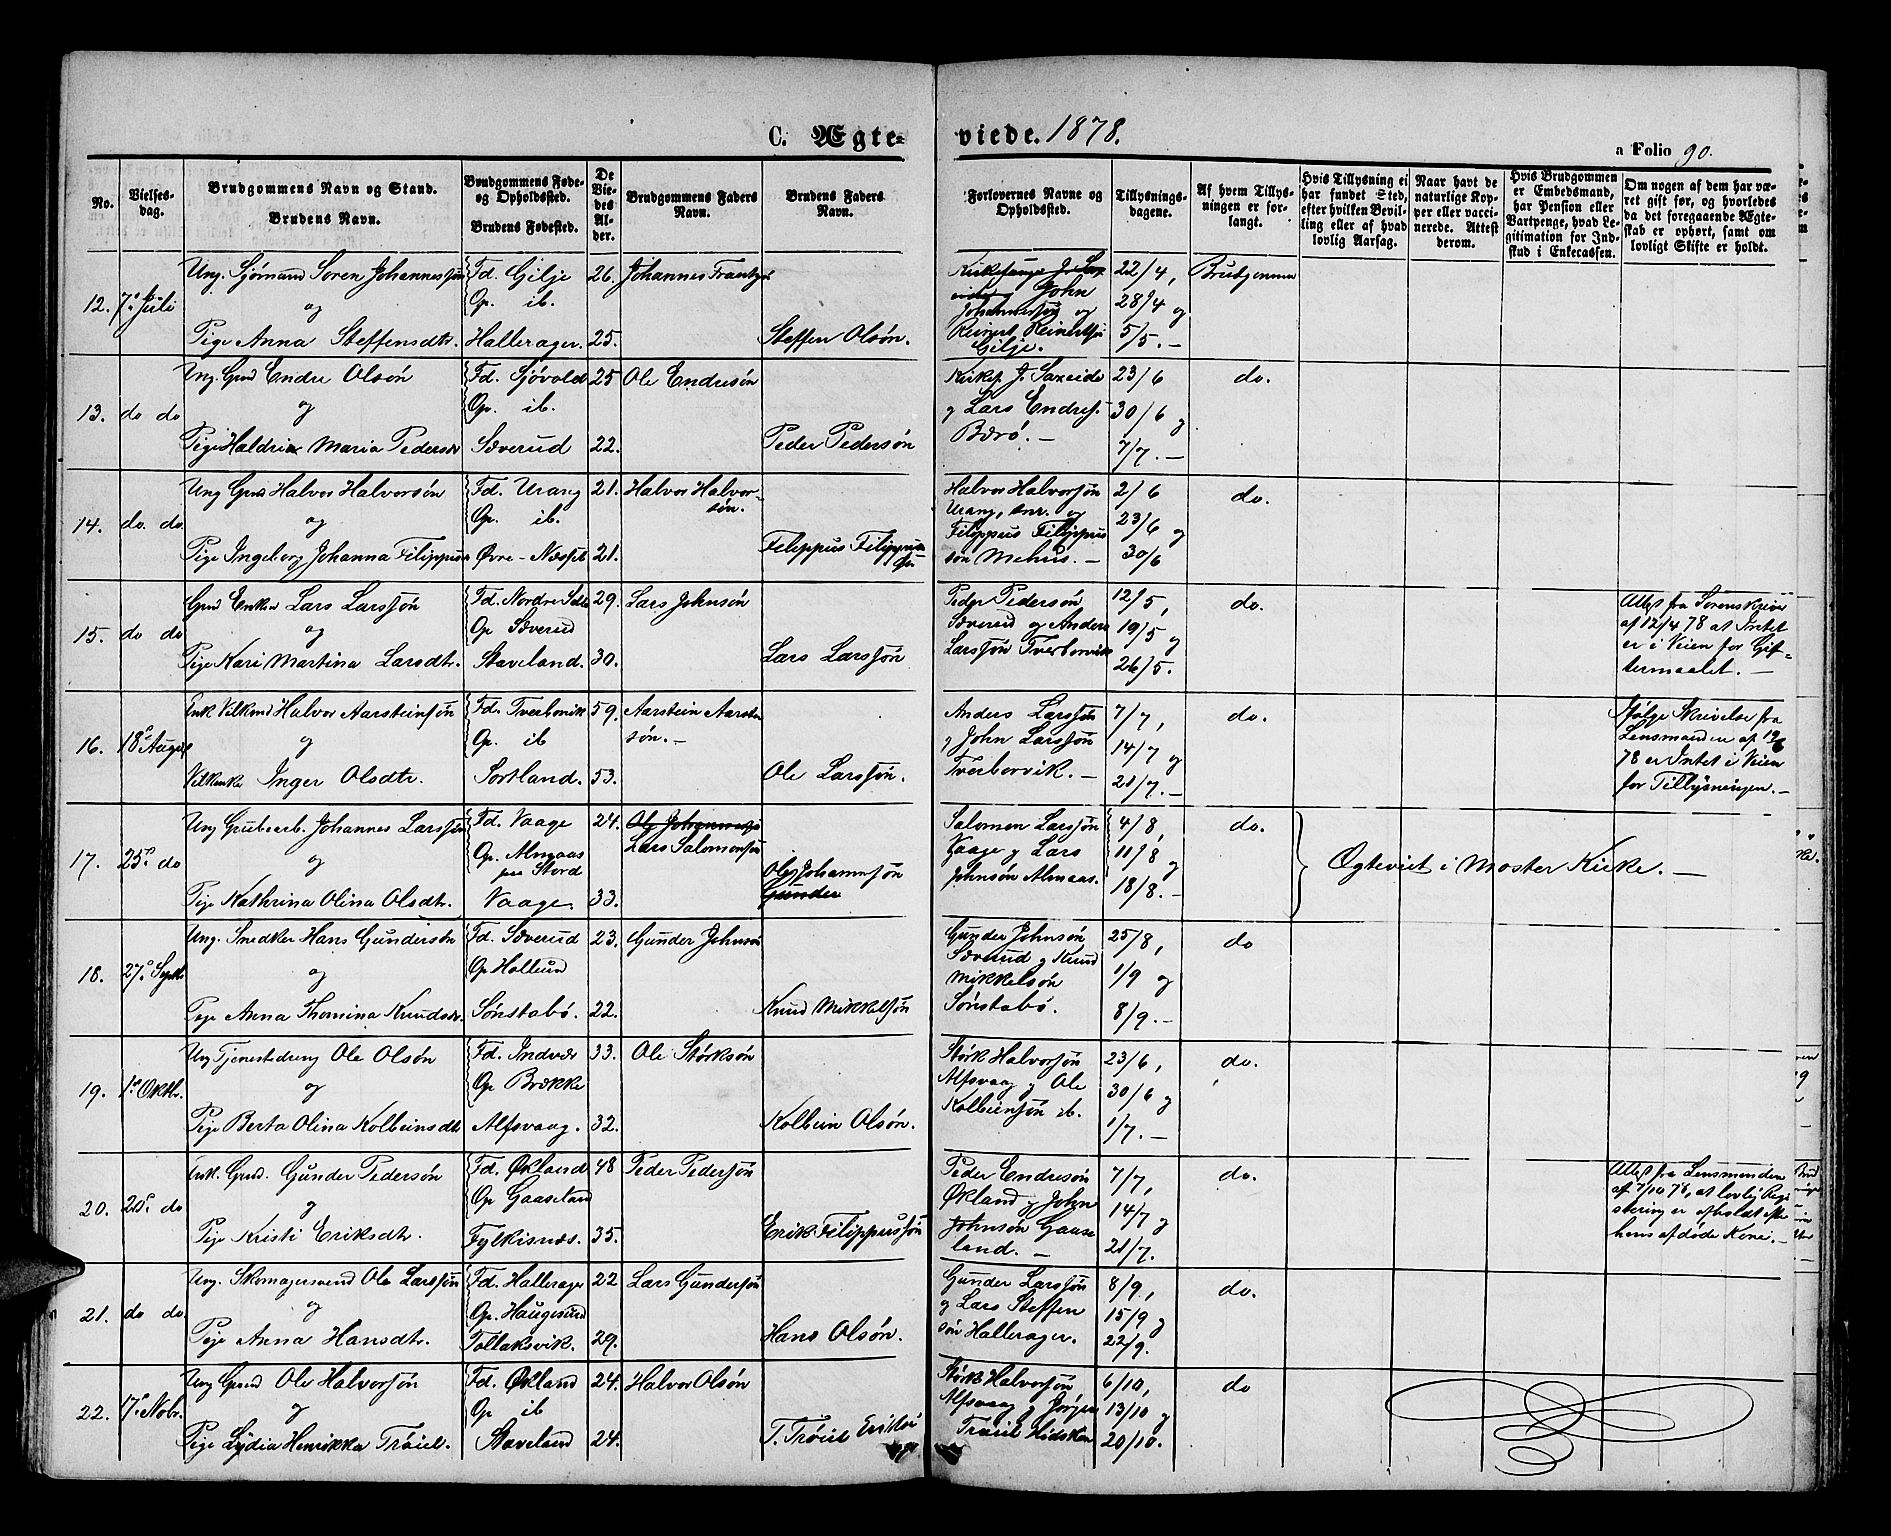 C. Ægte-
viede. 1878.
a Folio 90.
No.
Vielses-
dag.
Brudgommens Navn og Stand.
Brudens Navn.
Brudgommens Føde-
og Opholdssted.
Brudens Fødested.
De
Vie-
des
Al-
der.
Brudgommens Faders
Navn.
Brudens Faders
Navn.
Forlovernes Navne og
Opholdssted.
Tillysnings-
dagene.
Af hvem Tillys-
ningen er for-
langt.
Hvis Tillysning ei
har fundet Sted,
efter hvilken Bevil-
ling eller af hvad
lovlig Aarsag.
Naar havt de
naturlige Kop-
per eller vacci-
nerede. Attest
derom.
Hvis Brudgommen
er Embedsmand,
har Pension eller
Vartpenge, hvad Le-
gitimation for Ind-
skud i Enkecassen.
Om nogen af dem har væ-
ret gift før, og hvorledes
da det foregaaende Ægte-
skab er ophørt, samt om
lovligt Skifte er holdt.
12. 7de Juli
Ung. Sjømand Soren Johannessøn
og
Pige Anna Steffensdtr.
Fd. Gilje
Op. ib.
Hallerager.
26.
25.
Johannes
Steffen Olsøn.
John
Johannessøn og
Reinert Reinertsøn
Gilje.
22/4,
28/4 og
5/5. —
Brudgommen
13. do do
Ung. Gmd Endre Olsøn
og
Pige Haldria Maria Pedersdtr
Fd. Sjóvold
Op. ib.
Sæverud
25
22.
Ole Endresøn
Peder Pedersøn
Kirkes. J. Saxeide
og Lars Endres.
Bærø. —
23/6
30/6 og
7/7. —
do.
14. do. do.
Ung Gmd Halvor Halvorsøn
og
Pige Ingeborg Johanna Filippusd
Fd. Urang
Op. ib.
Øvre-Næsse
21.
21.
Halvor Halvor-
søn.
Filippus Filippus
søn
Halvor Halvorsøn
Urang, snr. og
Filippus Filippus
søn Mehus. —
2/6
23/6 og
30/6
do.
15. do do
Gmd Enkem Lars Larssøn
og
Pige Kari Martina Larsdtr.
Fd. Nordre
Op Sæverud
Staveland.
29.
30.
Lars Johnsøn
Lars Larssøn
Peder Pedersøn
Sæverud og Anders
Larssøn Tverborvik
12/5,
19/5 og
26/5.
do.
Attest fra Sorenskriver
af 12/4 78 at Intet
er i Veien for Gif-
termaalet. —
16. 18de August
Enk. Vilkmd Halvor Aarsteinsøn
og
Vilkenke Inger Olsdtr.
Fd. Tverborvik
Op. ib
Sortland.
59.
53.
Aarstein Aarstein
søn. —
Ole Larssøn.
Anders Larssøn
og John Larssøn
Tverborvik. —
7/7,
14/7 og
21/7. —
do.
Ifølge Skrivelse fra
Lensmanden af 19/6
78 er Intet i Veien
for Tillysningen. —
17. 25de do
Ung Grubearb. Johannes Larssøn
og
Pige Kathrina Olina Olsdtr.
Fd. Vaage
Op. Almaas
paa Stord
Vaage.
24.
33.
Ole Johannessøn
Lars Salomonsøn
Ole Johannsøn
Gunder
Salomon Larssøn
Vaage og Lars
Johnsøn Almaas.
4/8,
11/8 og
18/8. —
do.
Ægteviet i Moster Kirke. —
18. 27de Septbr
Ung. Snedker Hans Gundersøn
og
Pige Anna Thomina Knudsdtr.
Fd. Sæverud
Op Hollund
Sønstabø.
23.
22.
Gunder Johnsøn
Knud Mikkelsøn
Gunder Johnsøn
Sæverud og Knud
Mikkelsøn
Sønstabø.
25/8,
1/9 og
8/9. —
do
19. 1ste Oktbr.
Ung Tjenestedreng Ole Olsøn
og
Pige Berta Olina Kolbeinsdtr
Fd. Indvær
Op Brække
Alfsvaag.
33.
32.
Ole Størksøn
Kolbein Olsøn.
Størk Halvorsøn
Alfsvaag og Ole
Kolbeinsøn ib.
23/6,
30/6 og
1/7. —
do.
20. 25de do
Enk. Gmd. Gunder Pedersøn
og
Pige Kristi Eriksdtr.
Fd. Økland
Op Gaaseland
Fylkisnæs.
48
35.
Peder Pedersøn
Erik Filippussøn
Peder Endresøn
Økland og John
Johnsøn Gaase
land. —
7/7,
14/7 og
21/7.
do.
Attest fra Lensmanden
af 7/10 78, at lovlig Regi
strering er afholdt efter
hans afdøde Kone. —
21. do do.
Ung. Skomagersvend Ole Larssøn
og
Pige Anna Hansdtr.
Fd. Hallerager
Op. Haugesund
Tollaksvik.
22
29.
Lars Gundersøn
Hans Olsøn.
Gunder Larssøn
og Lars Steffen
søn Hallerager.
8/9,
15/9 og
22/9.
do.
22. 7de Novbr.
Ung Gmd Ole Halvorsøn
og
Pige Lydia Henrikka Trøiel.
Fd. Økland
Op ib
Staveland
24.
24.
Halvor Olsøn
T. Trøiel
Størk Halvorsøn
Alfsvaag og Jørgen
Trøiel Hidsken
6/10,
13/10 og
20/10.
do